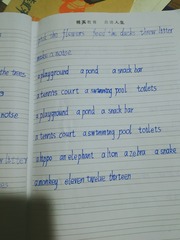 pick the flowers feed the ducks throw litter
make a noise
a playground a pond a snack bar
a tennis court a swimming pool toilets
a playground a pond a snack bar
a tennis court a swimming pool toilets
a hippo an elephant a lion a zebra a snake
a monkey eleven twelve thirteen